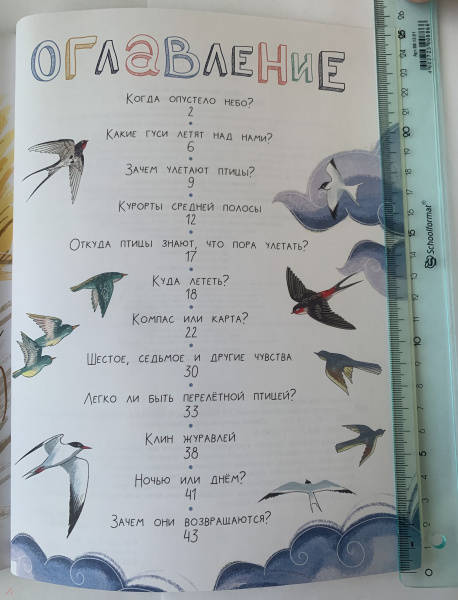 ОГЛАВЛЕНИЕ
Когда опустело небо?
2
Какие гуси летят над нами?
6
Зачем улетают птицы?
9
Курорты средней полосы
12
Откуда птицы знают, что пора улетать?
17
Куда лететь?
18
Компас или карта?
22
Шестое, седьмое и другие чувства
30
Легко ли быть перелётной птицей?
33
Клин журавлей
38
Ночью или днём?
41
Зачем они возвращаются?
43
Schoolformat
0 1 2 3 4 5 6 7 8 9 10 11 12 13 14 15 16 17 18 19 20 21 22 23 24 25 26